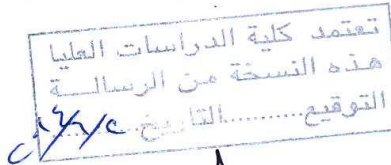 تعتمد كلية الدراسات العليا
هذه النسخة من الرسالــــة
التوقيع..........التاريخ..........